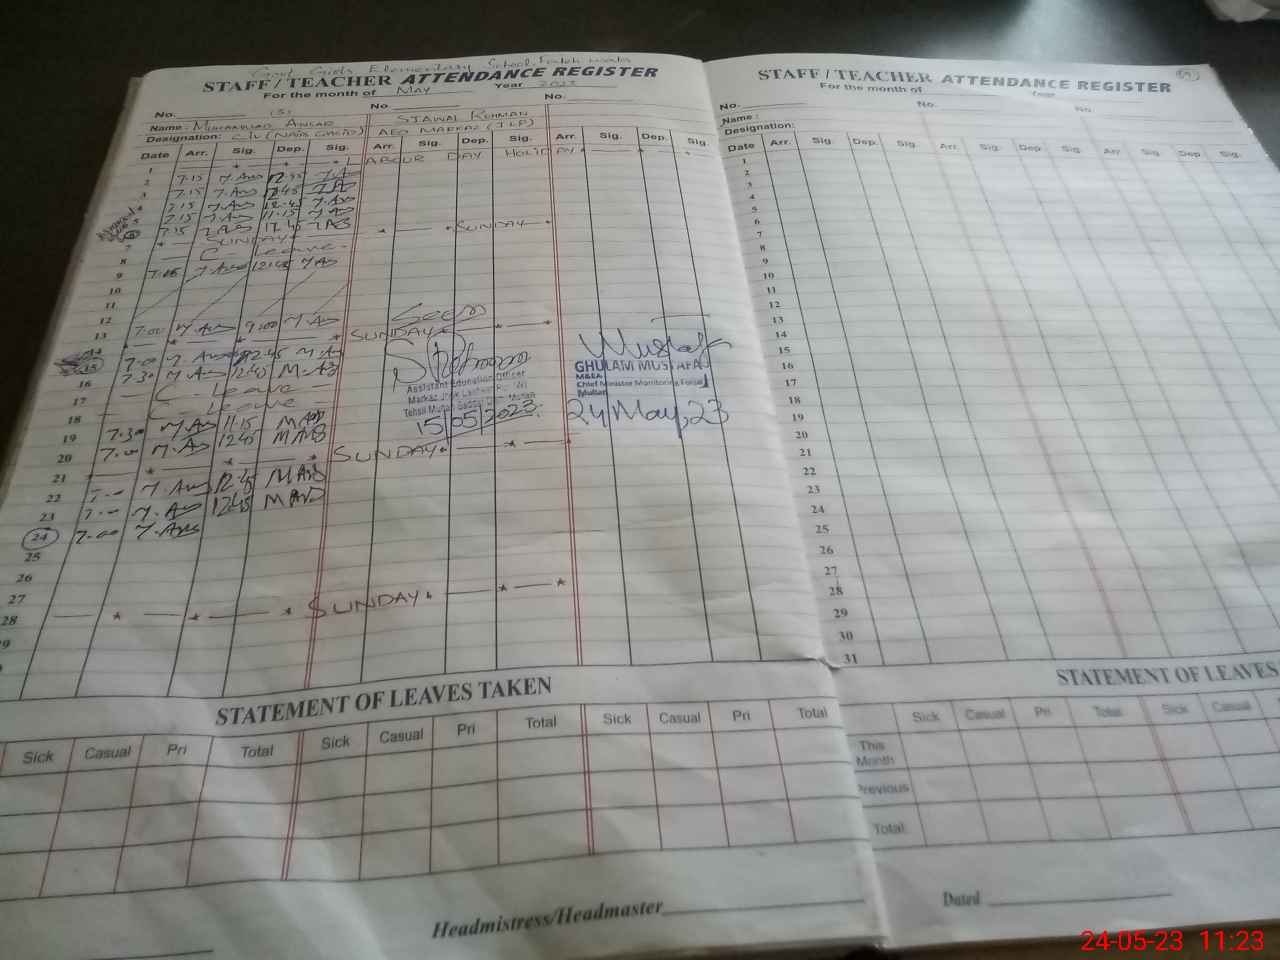 Govt Girls Elementary School
STAFF / TEACHER ATTENDANCE REGISTER
For the month of May Year 2023
No. No. No.
Name: Muhammad Ansar SJAWAL REHMAN
Designation: C-IV (NAIB QASID) AEO MARKAZ
Date Arr. Sig. Dep. Sig. Arr. Sig. Dep. Sig. Arr. Sig. Dep. Sig.
1 LABOUR DAY HOLIDAY
2 7.15 M.Ans 12.45 M.An
3 7.15 M.Ans 12.45 M.An
4 7.15 M.Ans 12.45 M.Ans
5 7.15 M.Ans 11.15 M.Ans
6 7.15 M.Ans 12.45 M.Ans
7 SUNDAY SUNDAY
8 C-Leave
9 7.15 M.Ans 12:45 M.Ans
10
11
12
13 7:00 M.Ans 9:00 M.Ans
14 SUNDAY
15 7:00 M.Ans 12:45 M.Ans
16 7.30 M.Ans 12:45 M.Ans
17 C-Leave
18 C-Leave
19 7.30 M.Ans 11.15 M Ans
20 7.00 M.Ans 12.45 M Ans
21 SUNDAY
22 7.00 M.Ans 12:45 M Ans
23 7.00 M.Ans 12:45 M Ans
24 7.00 M.Ans
25
26
27
28 SUNDAY
29
Seen
Assistant Education Officer
Tehsil Multan
15/05/2023
Mustafa
GHULAM MUSTAFA
M&EA
Chief Minister Monitoring Force
Multan
24 May, 23
STATEMENT OF LEAVES TAKEN
Sick Casual Pri Total Sick Casual Pri Total Sick Casual Pri Total
Headmistress/Headmaster
STAFF / TEACHER ATTENDANCE REGISTER
For the month of Year
No. No. No.
Name :
Designation:
Date Arr. Sig. Dep. Sig. Arr. Sig. Dep. Sig. Arr. Sig. Dep. Sig.
1
2
3
4
5
6
7
8
9
10
11
12
13
14
15
16
17
18
19
20
21
22
23
24
25
26
27
28
29
30
31
STATEMENT OF LEAVES
Sick Casual Pri Total Sick Casual
This Month
Previous
Total
Dated
24-05-23 11:23